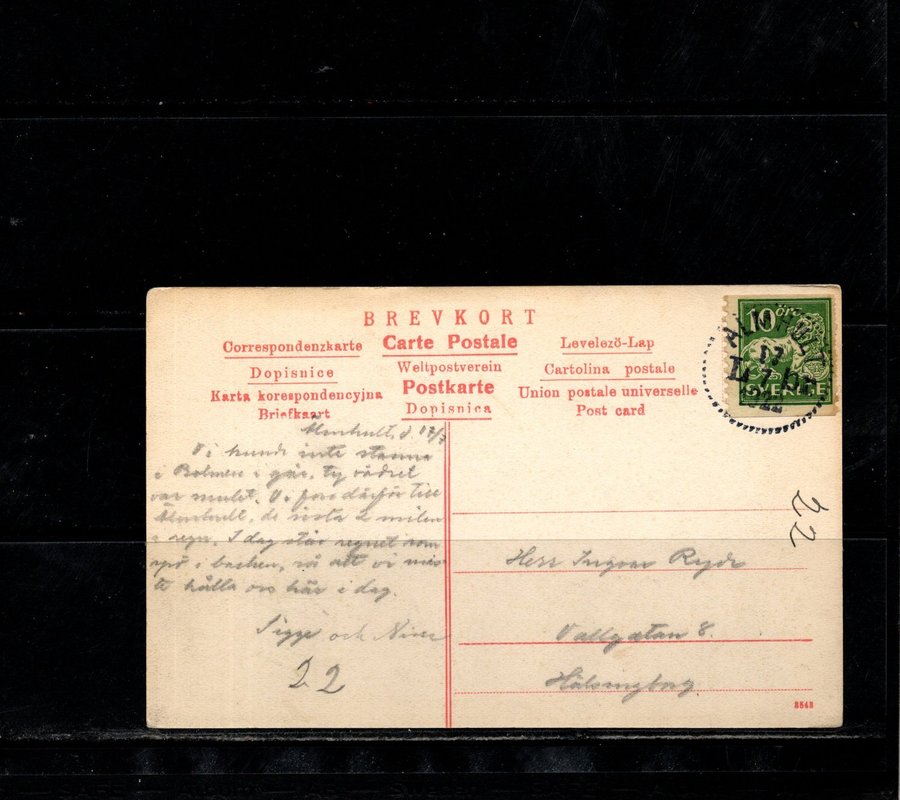 BREVKORT
Correspondenzkarte Carte Postale Levelező-Lap
Dopisnice Weltpostverein Cartolina postale
Karta korespondencyjna Postkarte Union postale universelle
Briefkaart Dopisnica Post card
10 öre
ÄLMHULT
17 7
22
SVERIGE
Älmhult, d 17/7
Vi kunde inte stanna
i Bolmen i går, ty vädret
var mulet. Vi foro därför till
Älmhult, de sista 2 milen
i regn. I dag står regnet som
spö i backen, så att vi mås-
te hålla oss här i dag.
Sigge och
22
22
Herr Ingvar Ryde
Vallgatan 8.
Hälsingborg
8543